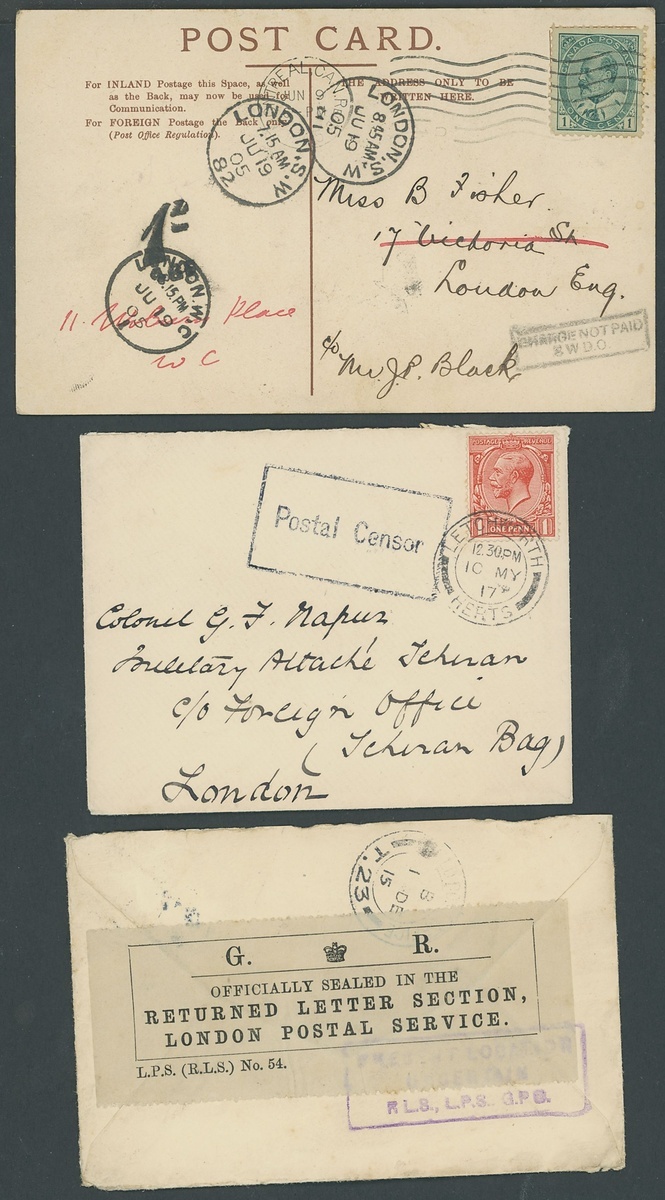 POST CARD.
For INLAND Postage this Space, as well
as the Back, may now be used for
Communication.
For FOREIGN Postage the Back only
(Post Office Regulation).
THE ADDRESS ONLY TO BE
WRITTEN HERE.
CANADA POSTAGE
1 ONE CENT 1
LONDON. S.W
7.15 AM
JU 19
05
82
LONDON. S.W
8.45 AM
JU 19
05
1d
LONDON. W.C
.15 PM
JU 19
05
Miss B Fisher.
17 Victoria St
London Eng.
c/o Mr J.P. Black
11. Place
W C
CHARGE NOT PAID
S.W.D.O.
POSTAGE REVENUE
ONE PENNY 1
Postal Censor
LETCHWORTH
12.30 PM
10 MY
17
HERTS
Colonel G. F. Napier
Military Attaché Teheran
c/o Foreign Office
(Teheran Bag)
London
1 DE
15
T.23
G. R.
OFFICIALLY SEALED IN THE
RETURNED LETTER SECTION,
LONDON POSTAL SERVICE.
L.P.S. (R.L.S.) No. 54.
R L.S., L.P.S. G.P.O.